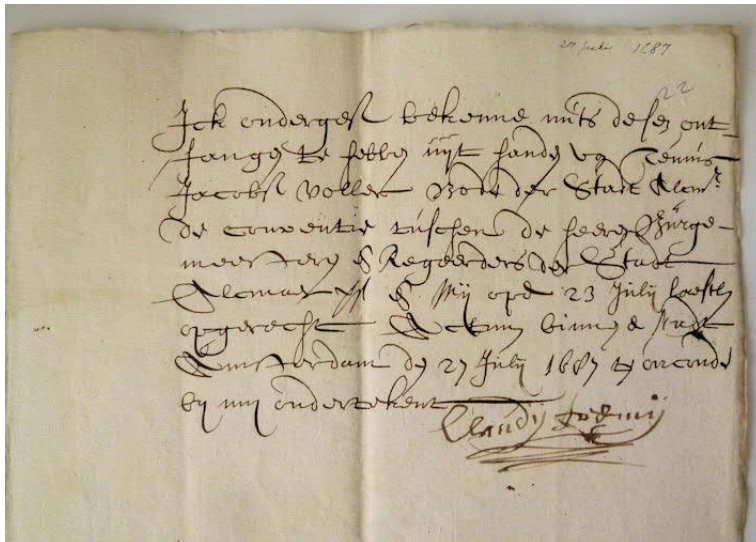 27 Juli 1687
22
Ick onderges bekenne mits desen ont-
fangen te hebben uyt handen van Teunis
Jacobs Voller Bode der Stadt Alcmr
de conventie tusschen de heeren Burge-
meesteren & Regeerders der Stadt
Alcmaer & mij opd 23 Julij laestl
opgerecht Actum binnen d stadt
Amsterdam den 27 Julij 1687 t' orconde
bij mij ondertekent